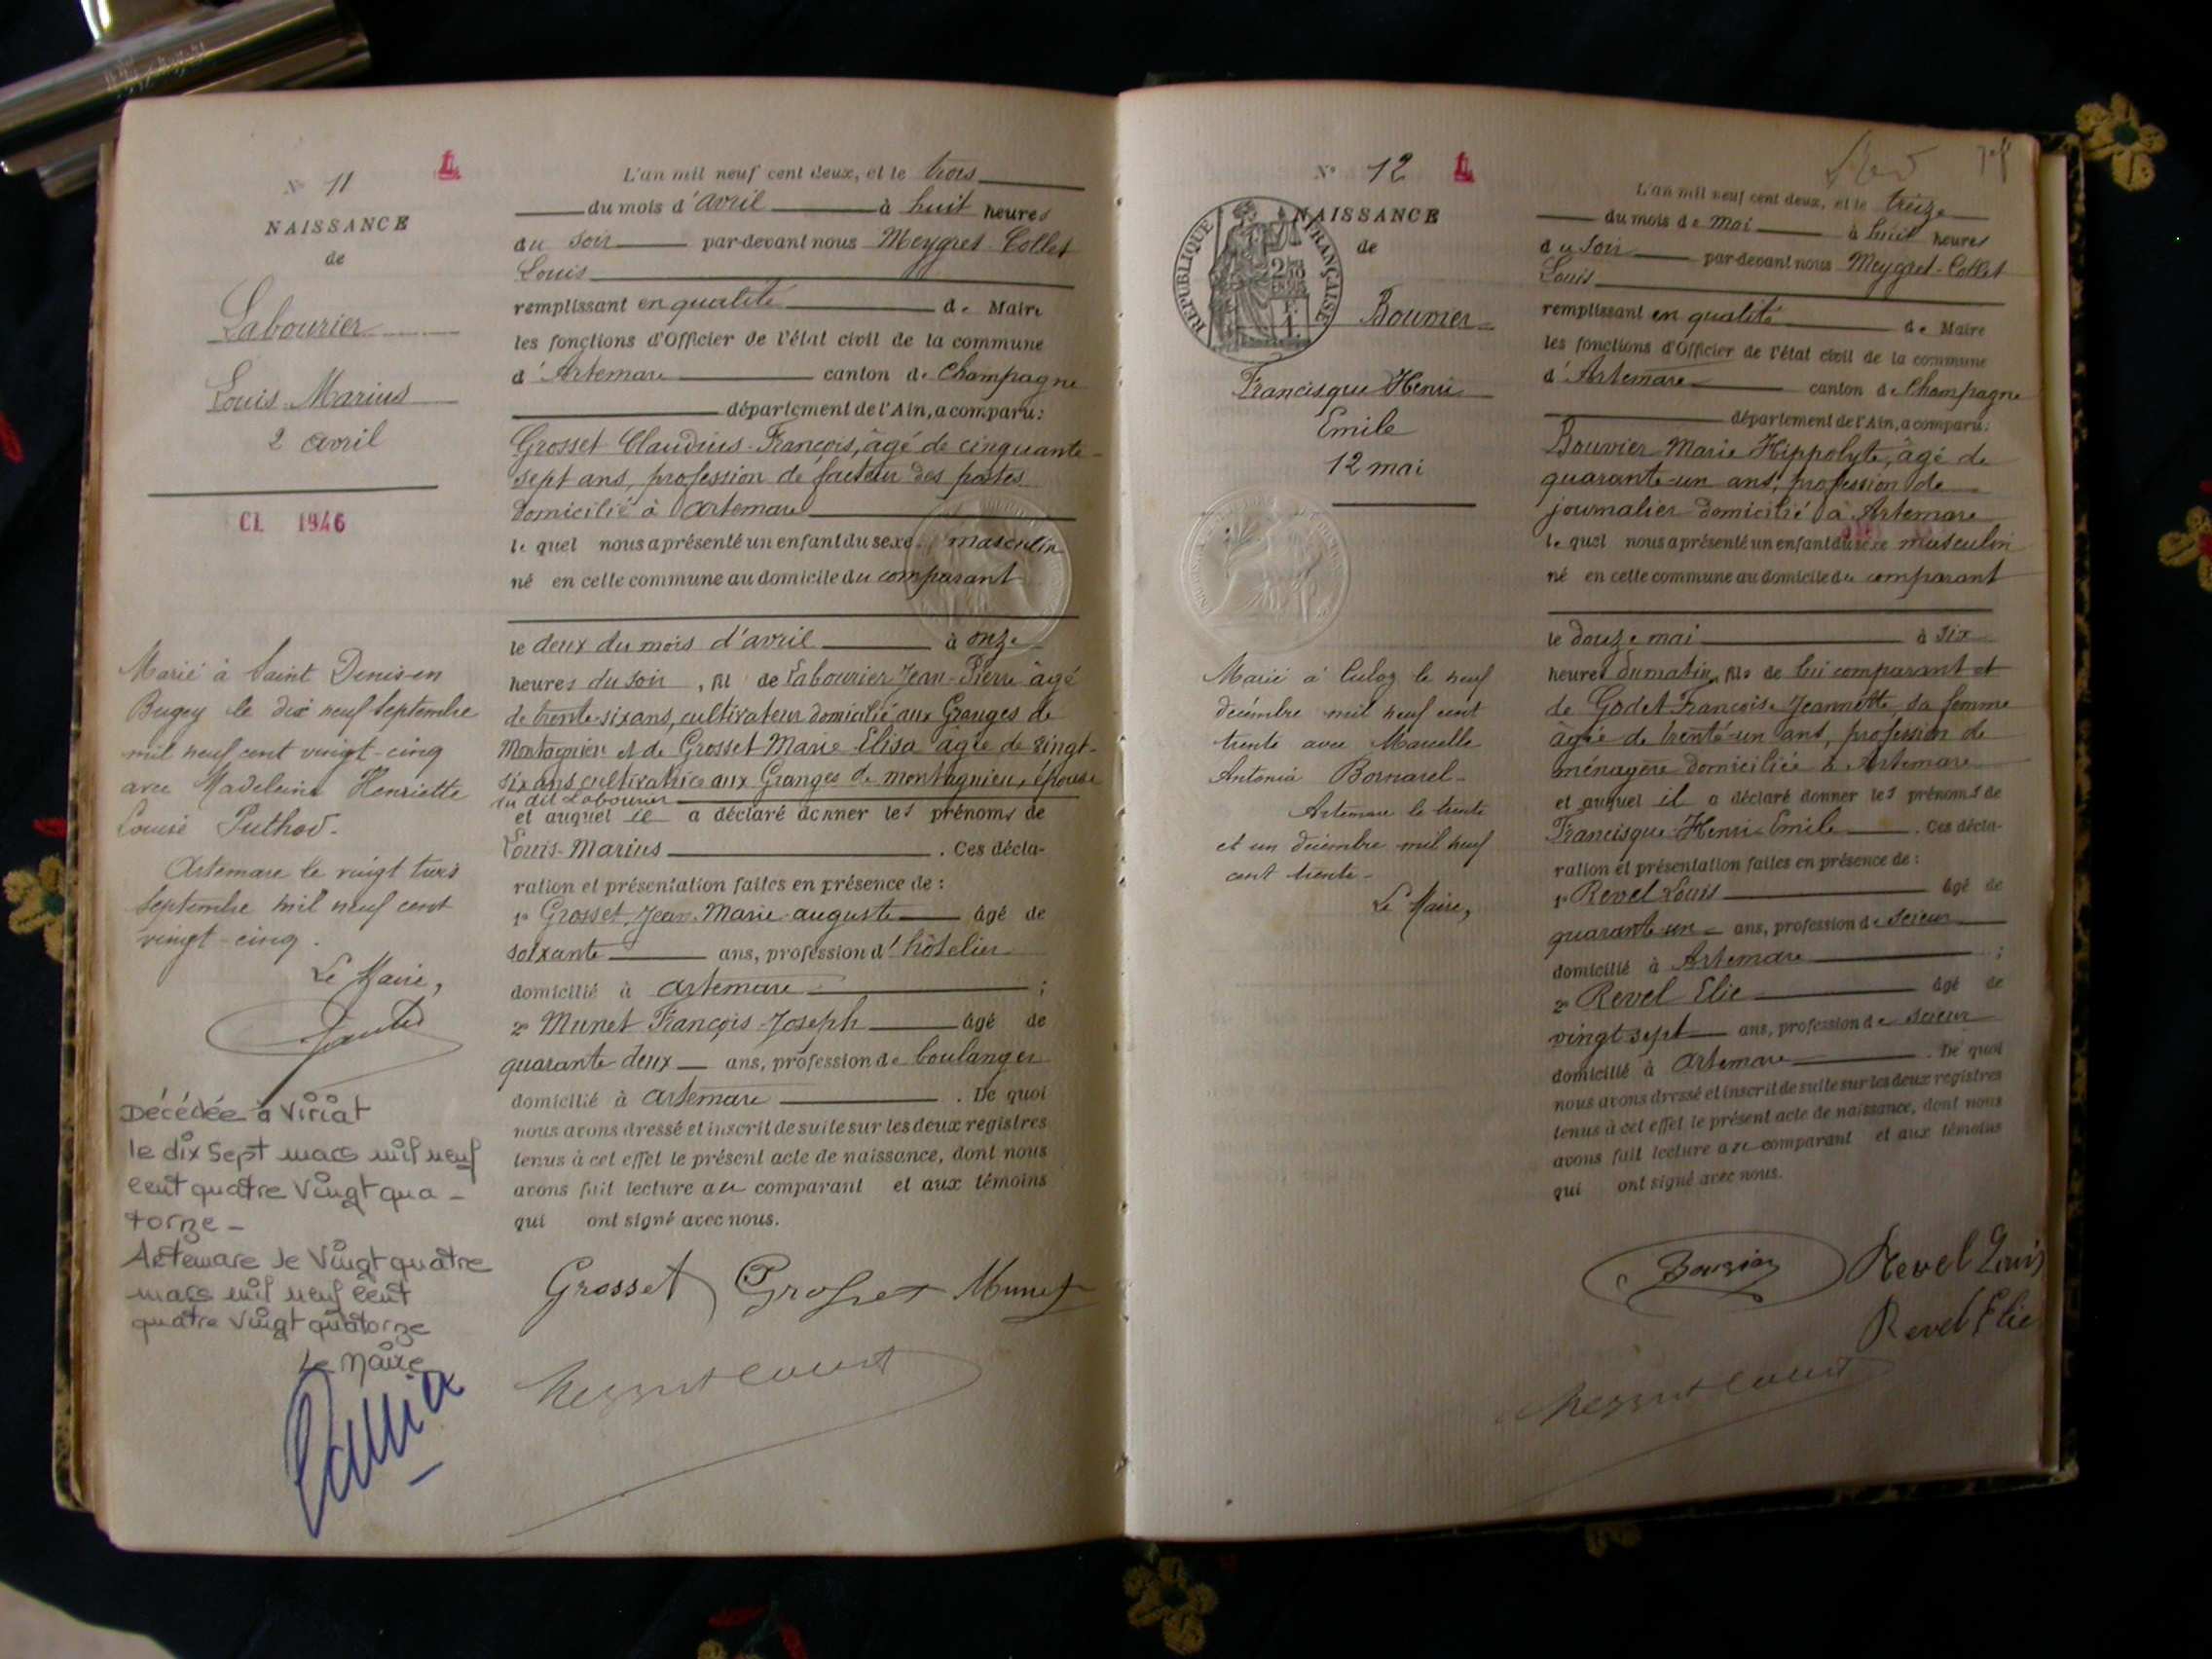 N° 11
NAISSANCE
de
Labourier
Louis Marius
2 avril
CL 1946
Marié à Saint Denis-en
Bugey le dix neuf Septembre
mil neuf cent vingt-cinq
avec Madeleine Henriette
Louise Puthod.
Artemare le vingt trois
Septembre mil neuf cent
vingt-cinq.
Le Maire,
Décédée à Viriat
le dix Sept mars mil neuf
cent quatre vingt qua-
torze-
Artemare le Vingt quatre
mars mil neuf cent
quatre vingt quatorze
Le Maire
L'an mil neuf cent deux, et le trois
du mois d'avril à huit heures
du soir par-devant nous Meygret-Collet
Louis
remplissant en qualité de Maire
les fonctions d'Officier de l'état civil de la commune
d'Artemare canton de Champagne
département de l'Ain, a comparu:
Grosset Claudius-François, âgé de cinquante-
sept ans, profession de facteur des postes
domicilié à Artemare
lequel nous a présenté un enfant du sexe masculin
né en cette commune au domicile du comparant
le deux du mois d'avril à onze
heures du soir, fils de Labourier Jean-Pierre âgé
de trente-six ans, cultivateur domicilié aux Granges de
Montagnieu et de Grosset Marie-Elisa âgée de vingt-
six ans cultivatrice aux Granges de montagnieu, épouse
du dit Labourier
et auquel il a déclaré donner les prénoms de
Louis-Marius. Ces décla-
ration et présentation faites en présence de :
1° Grosset Jean Marie-auguste âgé de
soixante ans, profession d'hôtelier
domicilié à artemare ;
2° Munet François-Joseph âgé de
quarante-deux ans, profession de boulanger
domicilié à artemare. De quoi
nous avons dressé et inscrit de suite sur les deux registres
tenus à cet effet le présent acte de naissance, dont nous
avons fait lecture au comparant et aux témoins
qui ont signé avec nous.
Grosset Grosset Munet
N° 12
NAISSANCE
de
RÉPUBLIQUE FRANÇAISE
Bouvier
Francisque Henri
Emile
12 mai
Marié à Culoz le neuf
décembre mil neuf cent
trente avec Marcelle
Antonia Bornarel-
Artemare le trente
et un décembre mil neuf
cent trente-
Le Maire,
L'an mil neuf cent deux, et le treize
du mois de mai à huit heures
du soir par-devant nous Meygret-Collet
Louis
remplissant en qualité de Maire
les fonctions d'Officier de l'état civil de la commune
d'Artemare canton de Champagne
département de l'Ain, a comparu:
Bouvier Marie Hippolyte, âgé de
quarante-un ans, profession de
journalier domicilié à Artemare
lequel nous a présenté un enfant du sexe masculin
né en cette commune au domicile du comparant
le douze mai à six
heures du matin, fils de lui comparant et
de Godet Françoise Jeannette, sa femme
âgée de trente-un ans, profession de
ménagère domiciliée à Artemare
et auquel il a déclaré donner les prénoms de
Francisque-Henri-Emile. Ces décla-
ration et présentation faites en présence de :
1° Revel Louis âgé de
quarante-un ans, profession de scieur
domicilié à Artemare ;
2° Revel Elie âgé de
vingt sept ans, profession de scieur
domicilié à artemare. De quoi
nous avons dressé et inscrit de suite sur les deux registres
tenus à cet effet le présent acte de naissance, dont nous
avons fait lecture au comparant et aux témoins
qui ont signé avec nous.
Bouvier Revel Louis
Revel Elie